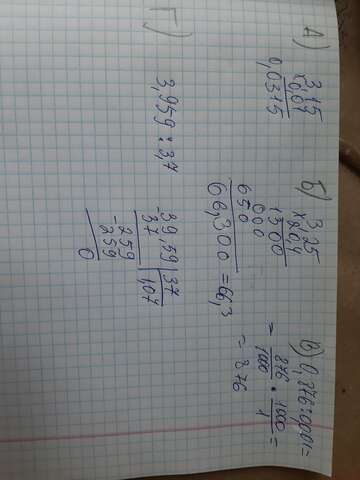 А) 3,15
×0,01
0,0315
Б) 3,25
×20,4
1300
000
650
66,300 = 66,3
В) 0,876:0,001=
= 876/1000 · 1000/1 =
= 876
Г)
3,959 : 3,7
-39,59 | 37
37 | 1,07
-259
259
0